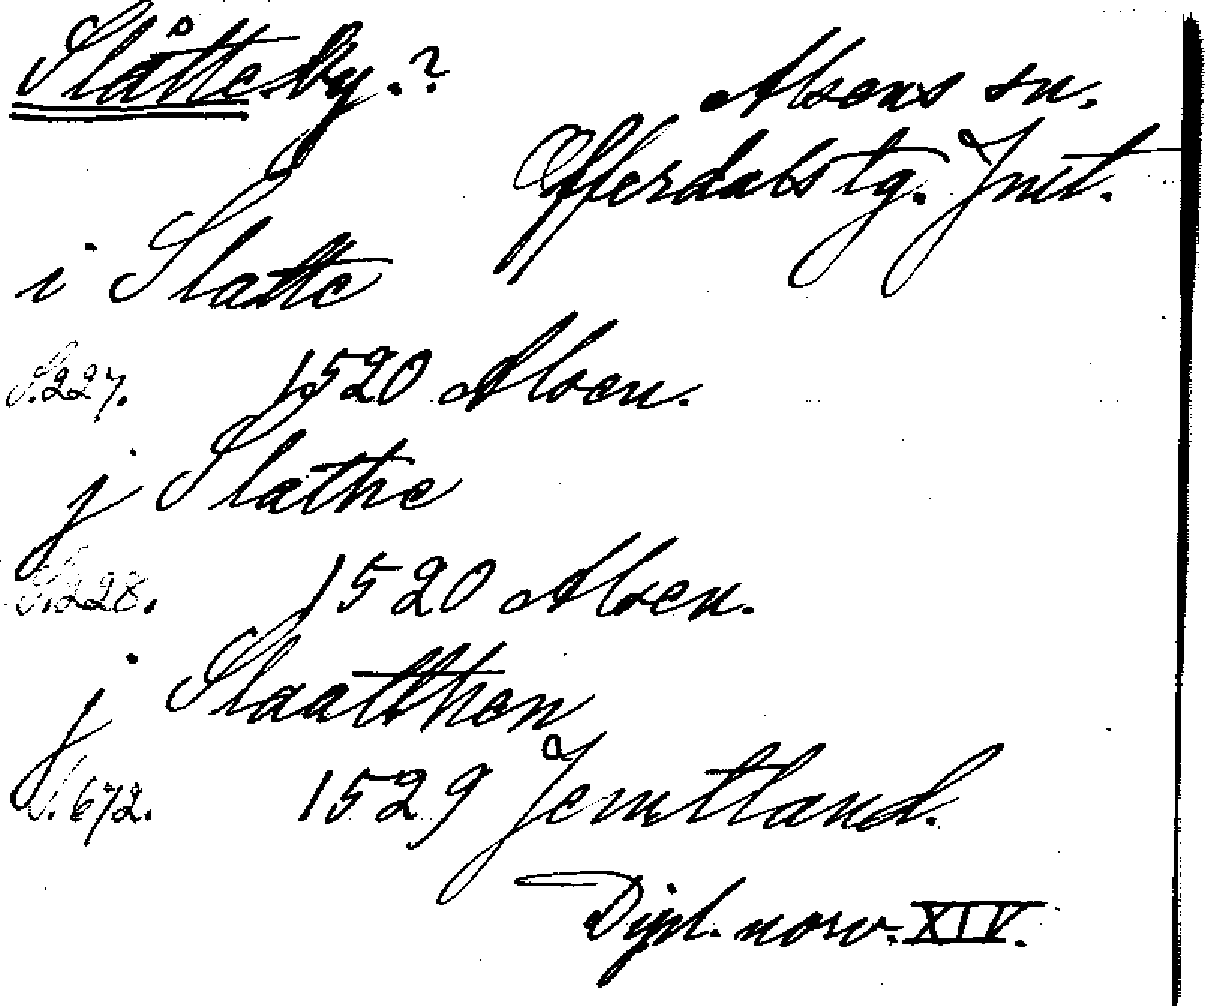 Slåtte by.?
Alsens sn.
Offerdals tg. Jmt.
i Slatte
S. 227. 1520 Alsen.
j Slathe
S. 228. 1520 Alsen.
j Slaatthen
S. 672. 1529 Jemtland.
Dipl. norv. XIV.